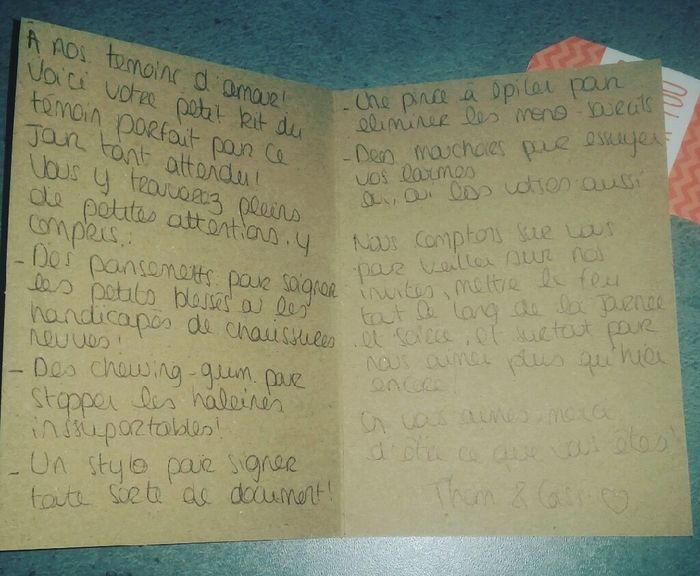 À nos témoins d'amour!
Voici votre petit kit du
témoin parfait pour ce
jour tant attendu!
Vous y trouverez pleins
de petites attentions, y
compris:
- Des pansements pour soigner
les petits blessés ou les
handicapés de chaussures
neuves!
- Des chewing-gum pour
stopper les haleines
inssuportables!
- Un stylo pour signer
toute sorte de document!
- Une pince à épiler pour
éliminer les mono-sourcils
- Des mouchoirs pour essuyer
vos larmes
oui, oui les votres aussi
Nous comptons sur vous
pour veiller sur nos
invités, mettre le feu
tout le long de la journée
et soirée, et surtout pour
nous aimer plus qu'hier
encore!
On vous aimes, merci
d'être ce que vous êtes!
Thom &